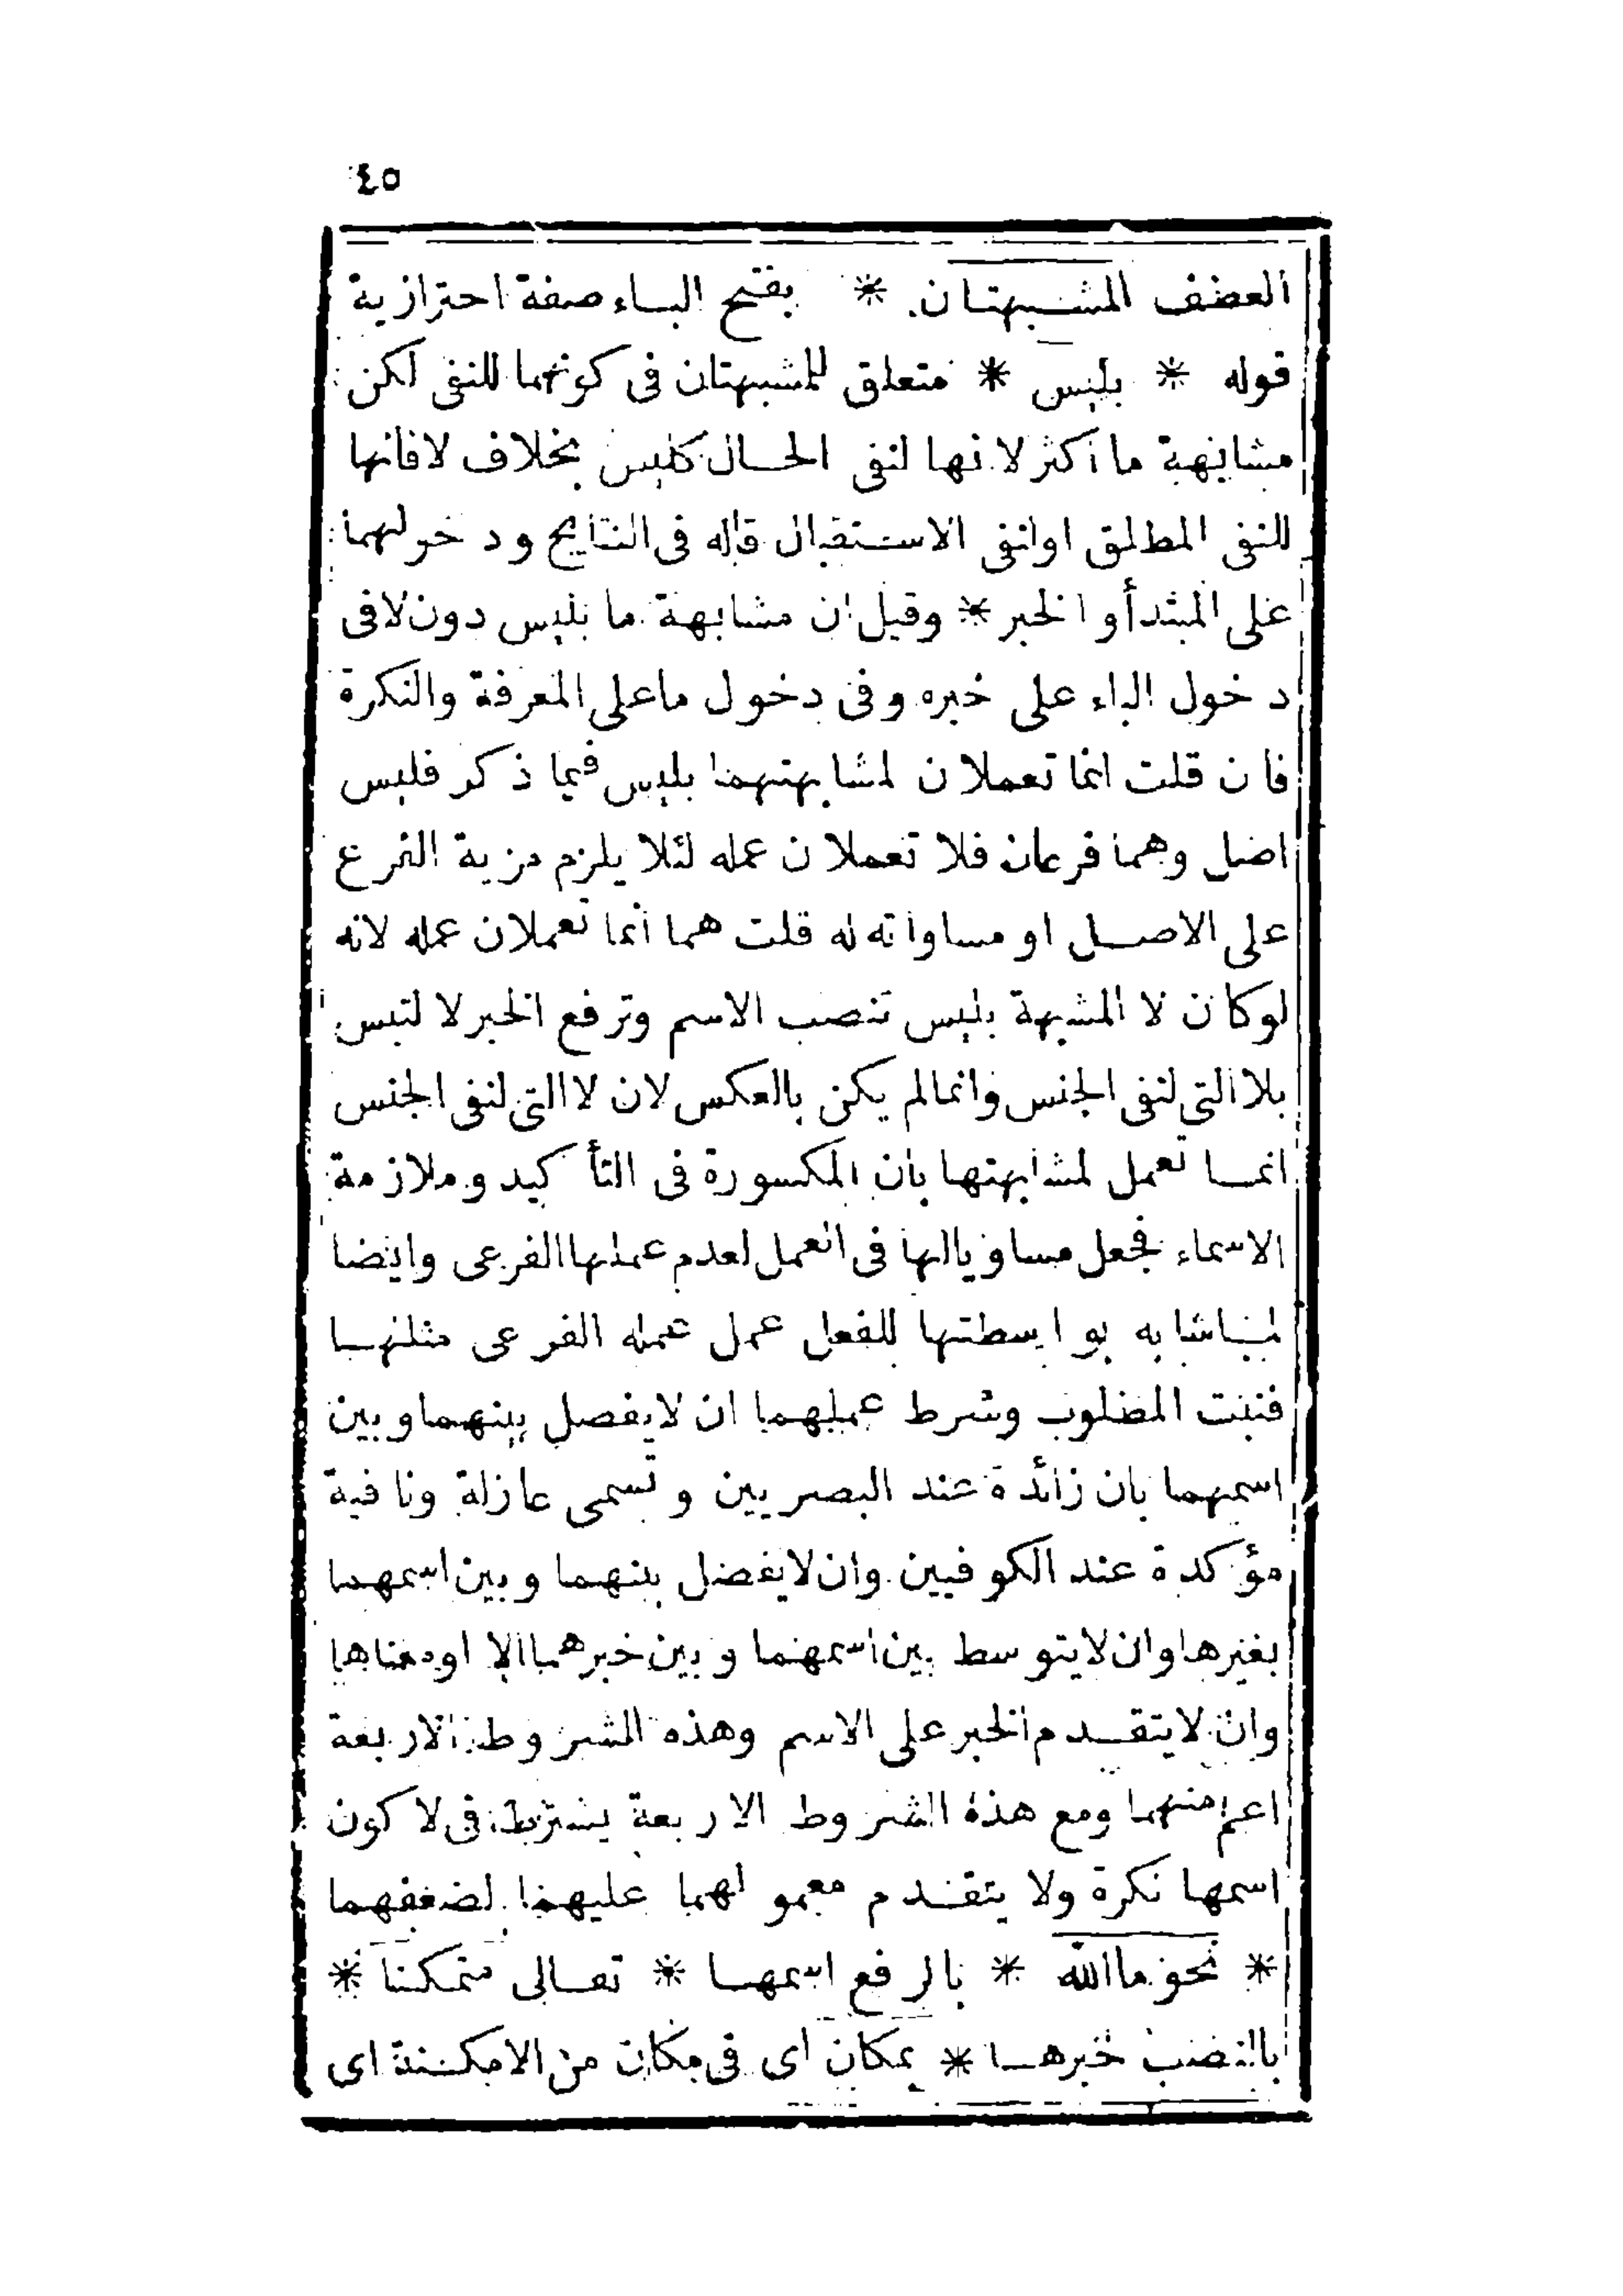 ٤٥
العطف المشبهتان * بفتح الباء صفة احترازية
قوله * بليس * متعلق للمشبهتان فى كونهما للنفى لكن
مشابهة ما اكثر لانها لنفى الحال كليس بخلاف لا فانها
للنفى المطلق اولنفى الاستقبال قاله فى النتايج ودخولهما
على المبتدأ والخبر * وقيل ان مشابهة ما بليس دون لا فى
دخول الباء على خبره وفى دخول ما على المعرفة والنكرة
فان قلت انما تعملان لمشابهتهما بليس فيما ذكر فليس
اصل وهما فرعان فلا تعملان عمله لئلا يلزم مزية الفرع
على الاصل او مساواته له قلت هما انما تعملان عمله لانه
لوكان لا المشبهة بليس تنصب الاسم وترفع الخبر لا لتبس
بلا التى لنفى الجنس وانما لم يكن بالعكس لان لا التى لنفى الجنس
انما تعمل لمشابهتها بان المكسورة فى التأكيد وملازمة
الاسماء فجعل مساويا لها فى العمل لعدم عملها الفرعى وايضا
لما شابه بواسطتها للفعل عمل عمله الفرعى مثلها
فثبت المطلوب وشرط عملهما ان لا يفصل بينهما وبين
اسمهما بان زائدة عند البصريين وتسمى عازلة ونافية
مؤكدة عند الكوفيين وان لا يفصل بينهما وبين اسمهما
بغيرها وان لا يتوسط بين اسمهما وبين خبرهما الا اومعناها
وان لا يتقدم الخبر على الاسم وهذه الشروط الاربعة
اعم منهما ومع هذه الشروط الاربعة يشترط فى لا كون
اسمها نكرة ولا يتقدم معمولهما عليهما لضعفهما
* نحو ما الله * بالرفع اسمها * تعالى متمكنا *
بالنصب خبرها * بمكان اى فى مكان من الامكنة اى